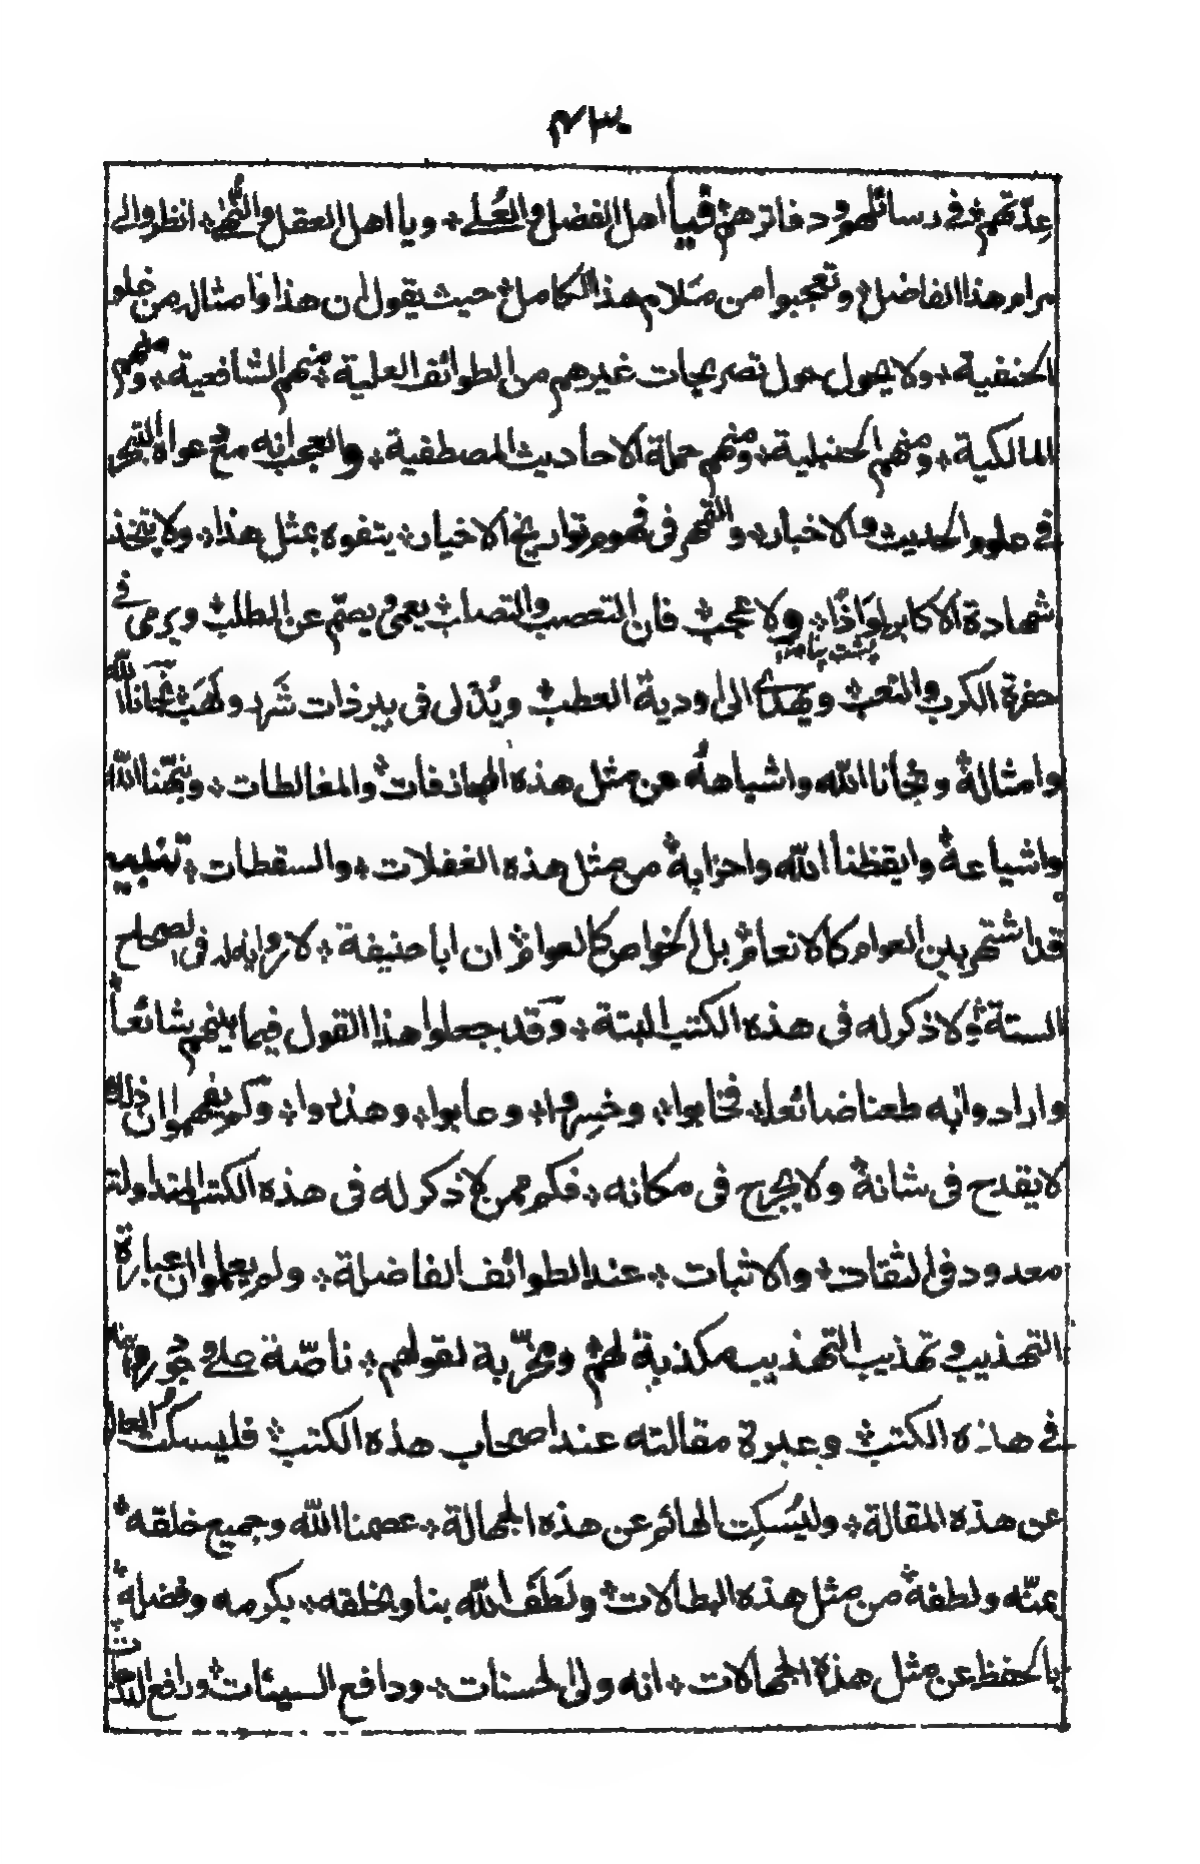 ٤٣٠
عدّتهم٭ في رسائلهم ودفاترهم٭ فيا أهل الفضل والعُلے٭ ويا اهل العقل والنُّهٰے٭ انظروا الى
مرام هذا الفاضل٭ وتعجبوا من كلام هذا الكامل٭ حيث يقول ان هذا وامثاله من خلو
الحنفية٭ ولا يحول حول تصريحات غيرهم من الطوائف العلية٭ منهم الشافعية٭ ومنهم
المالكية٭ ومنهم الحنبلية٭ ومنهم حملة الاحاديث المصطفية٭ والعجب انه مع دعواه التبحر
في علوم الحديث والاخبار٭ والتمهر فى فهوم تواريخ الاخيار٭ يتفوه بمثل هذا٭ ولا يتخذ
شهادة الاكابر لِوَاذًا٭ ولا عجب٭ فان التعصب والتصلب٭ يعمى ويصمّ عن الطلب٭ ويرمى في
حفرة الكرب والتعب٭ ويهدے الى اودية العطب٭ ويُدْلى فى بير ذات شَرَر ولَهَب٭ نجانا الله
وامثاله٭ ونجانا الله واشباهه٭ عن مثل هذه المهانفات٭ والمغالطات٭ ونبّهنا الله
واشياعه٭ وايقظنا الله واحزابه٭ من مثل هذه الغفلات٭ والسقطات٭ تنبيه
قد اشتهر بين العوام كالانعام٭ بل الخواص كالعوام٭ ان ابا حنيفة٭ لا رواية له فى الصحاح
الستة٭ ولا ذكر له فى هذه الكتب البتة٭ وقد جعلوا هذا القول فيما بينهم شائعاً٭
وارادوا به طعنا ضائعا٭ فخابوا٭ وخسروا٭ وعابوا٭ وهذروا٭ ولم يفهموا ان ذلك
لا يقدح فى شانه٭ ولا يجرح فى مكانه٭ فكم ممن لا ذكر له فى هذه الكتب المتداولة
معدود فى الثقات٭ والاثبات٭ عند الطوائف الفاضلة٭ ولم يعلموا ان عبارة
التهذيب وتهذيب التهذيب مكذبة لهم٭ ومخرّبة لقولهم٭ ناصّة علے وجود روايته
في هذه الكتب٭ وعبرة مقالته عند اصحاب هذه الكتب٭ فليسكُت العالم
عن هذه المقالة٭ وليُسكِت الهائم عن هذه الجهالة٭ عصمنا الله وجميع خلقه٭
بمنّه ولطفه٭ من مثل هذه البطالات٭ ولَطَفَ الله بنا وبخلقه٭ بكرمه وفضله٭
بالحفظ عن مثل هذه الجهالات٭ انه ولى الحسنات٭ ودافع السيئات٭ ورافع